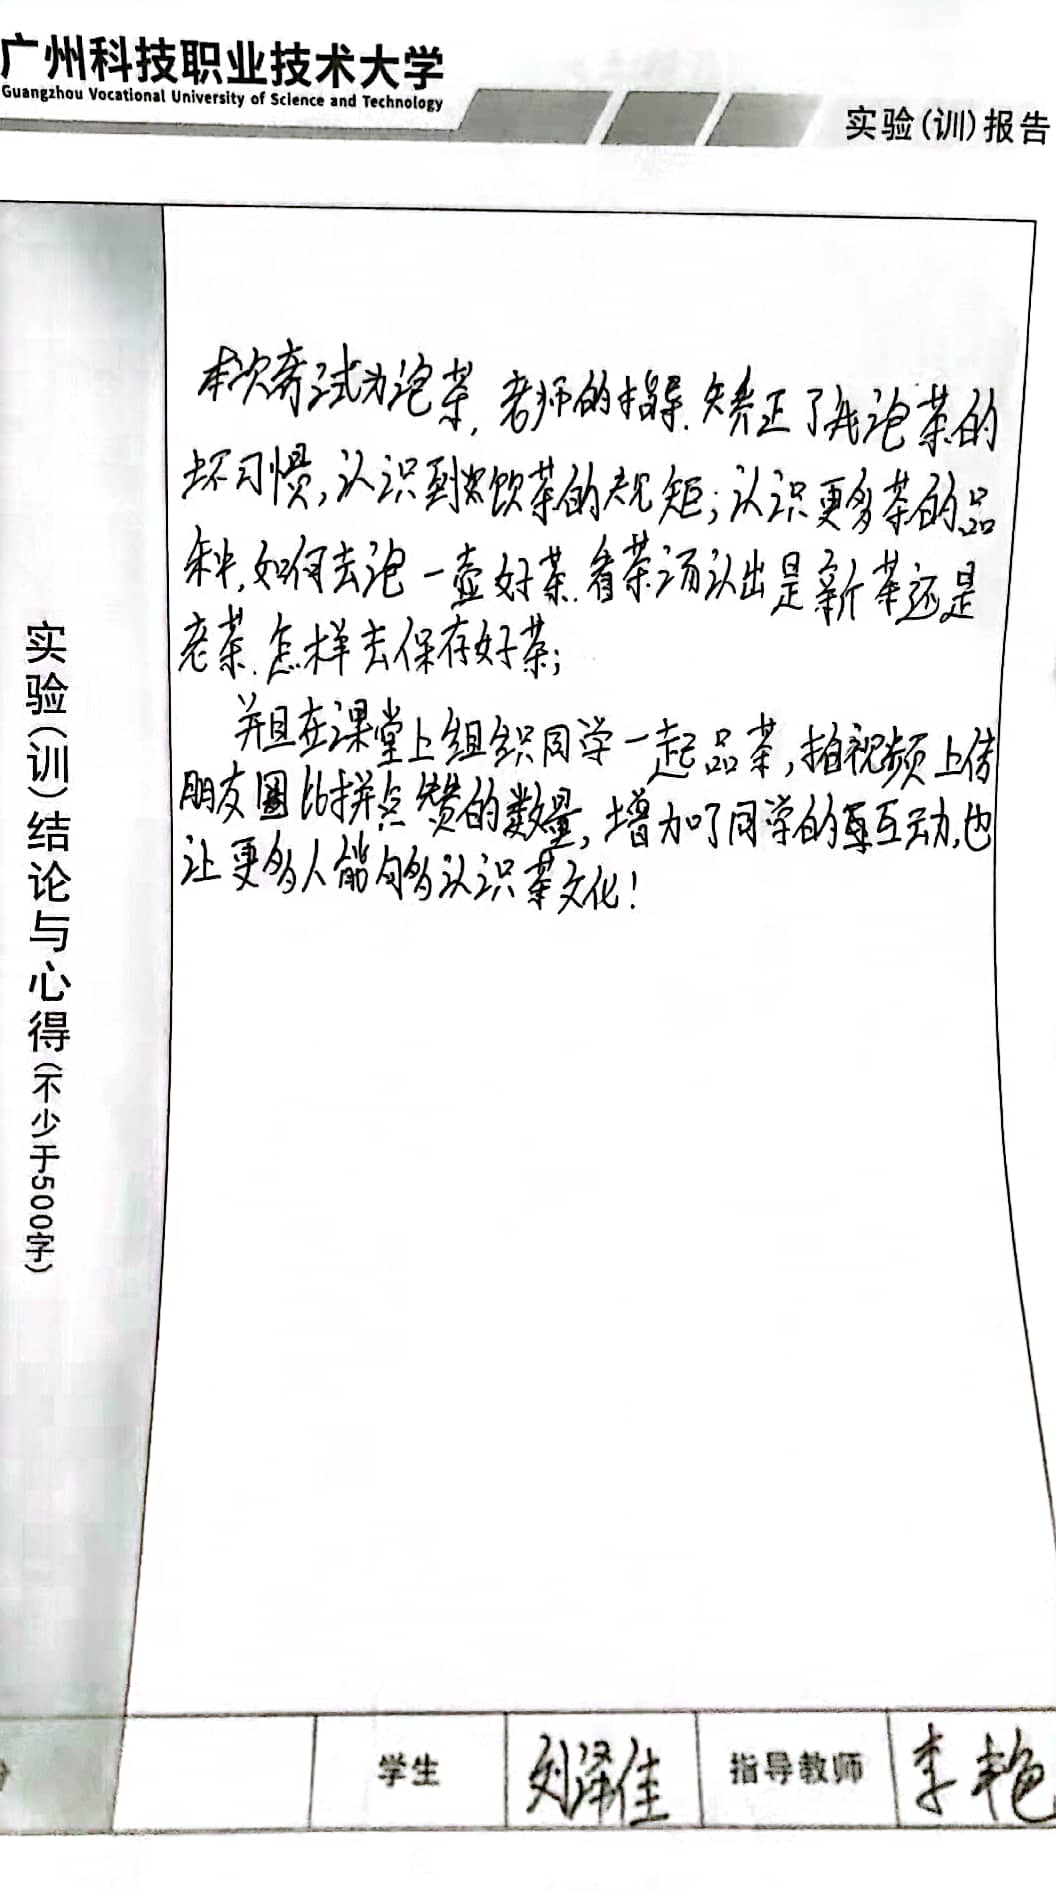 广州科技职业技术大学
Guangzhou Vocational University of Science and Technology
实验(训)报告
实验(训)结论与心得(不少于500字)
本次考试为泡茶,老师的指导.矫正了我泡茶的
坏习惯,认识到饮茶的规矩;认识更多茶的品
种,如何去泡一壶好茶.看茶汤认出是新茶还是
老茶.怎样去保存好茶;
并且在课堂上组织同学一起品茶,拍视频上传
朋友圈比拼点赞的数量,增加了同学的互动,也
让更多人能够认识茶文化!
学生
刘泽佳
指导教师
李艳